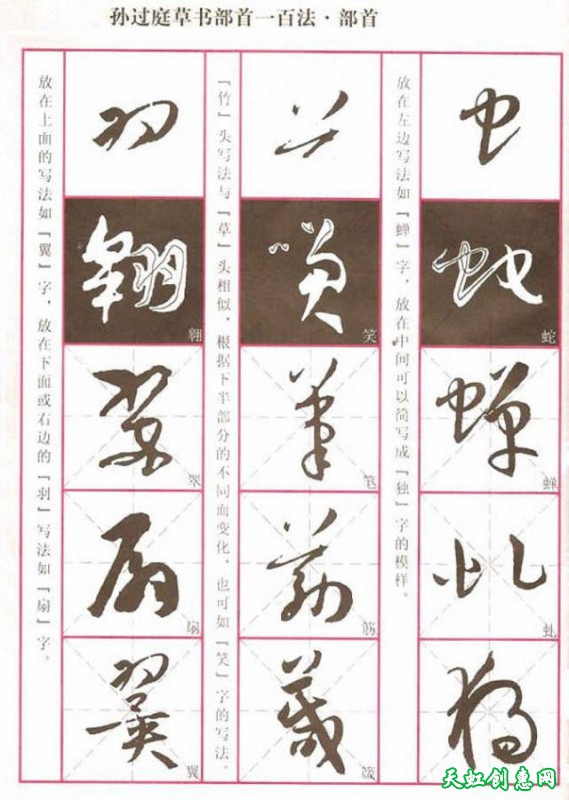 孙过庭草书部首一百法·部首
放在左边写法如「蝉」字，放在中间可以简写成「独」字的模样。
虫
蛇
蝉
虬
独
「竹」头写法与「草」头相似，根据下半部分的不同而变化，也可如「笑」字的写法。
笑
笔
筋
箴
放在上面的写法如「翼」字，放在下面或右边的「羽」写法如「扇」字。
羽
翱
翠
扇
翼
天虹创意网